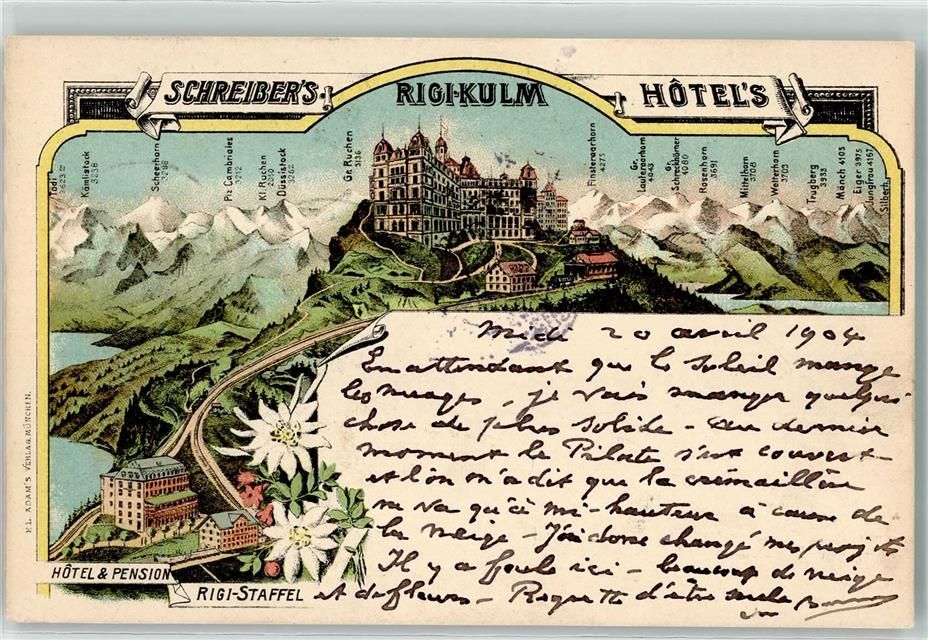 SCHREIBER'S RIGI-KULM HÔTEL'S
Tödi 3623 m
Kämlistock 3238
Scheerhorn 3296
Piz Cambriales 3212
Kl. Ruchen 2950
Düssistock 3262
Gr. Ruchen 3136
Finsteraarhorn 4275
Gr. Lauteraarhorn 4043
Gr. Schreckhörner 4080
Rosenhorn 3691
Mittelhorn 3708
Wetterhorn 3703
Trugberg 3933
Mönch 4105
Eiger 3975
Jungfrau 4167
Silberh.
Midi 20 avril 1904
En attendant que le soleil mange
les nuages, je vais manger quelque
chose de plus solide - Au dernier
moment le Pilate s'est couvert
et l'on m'a dit que la crémaillère
ne va qu'à mi-hauteur à cause de
la neige - J'ai donc changé mes projets
Il y a foule ici - beaucoup de neige
et de fleurs - Regrette d'être seule
HÔTEL & PENSION
RIGI-STAFFEL
F.L. ADAM'S VERLAG, MÜNCHEN.